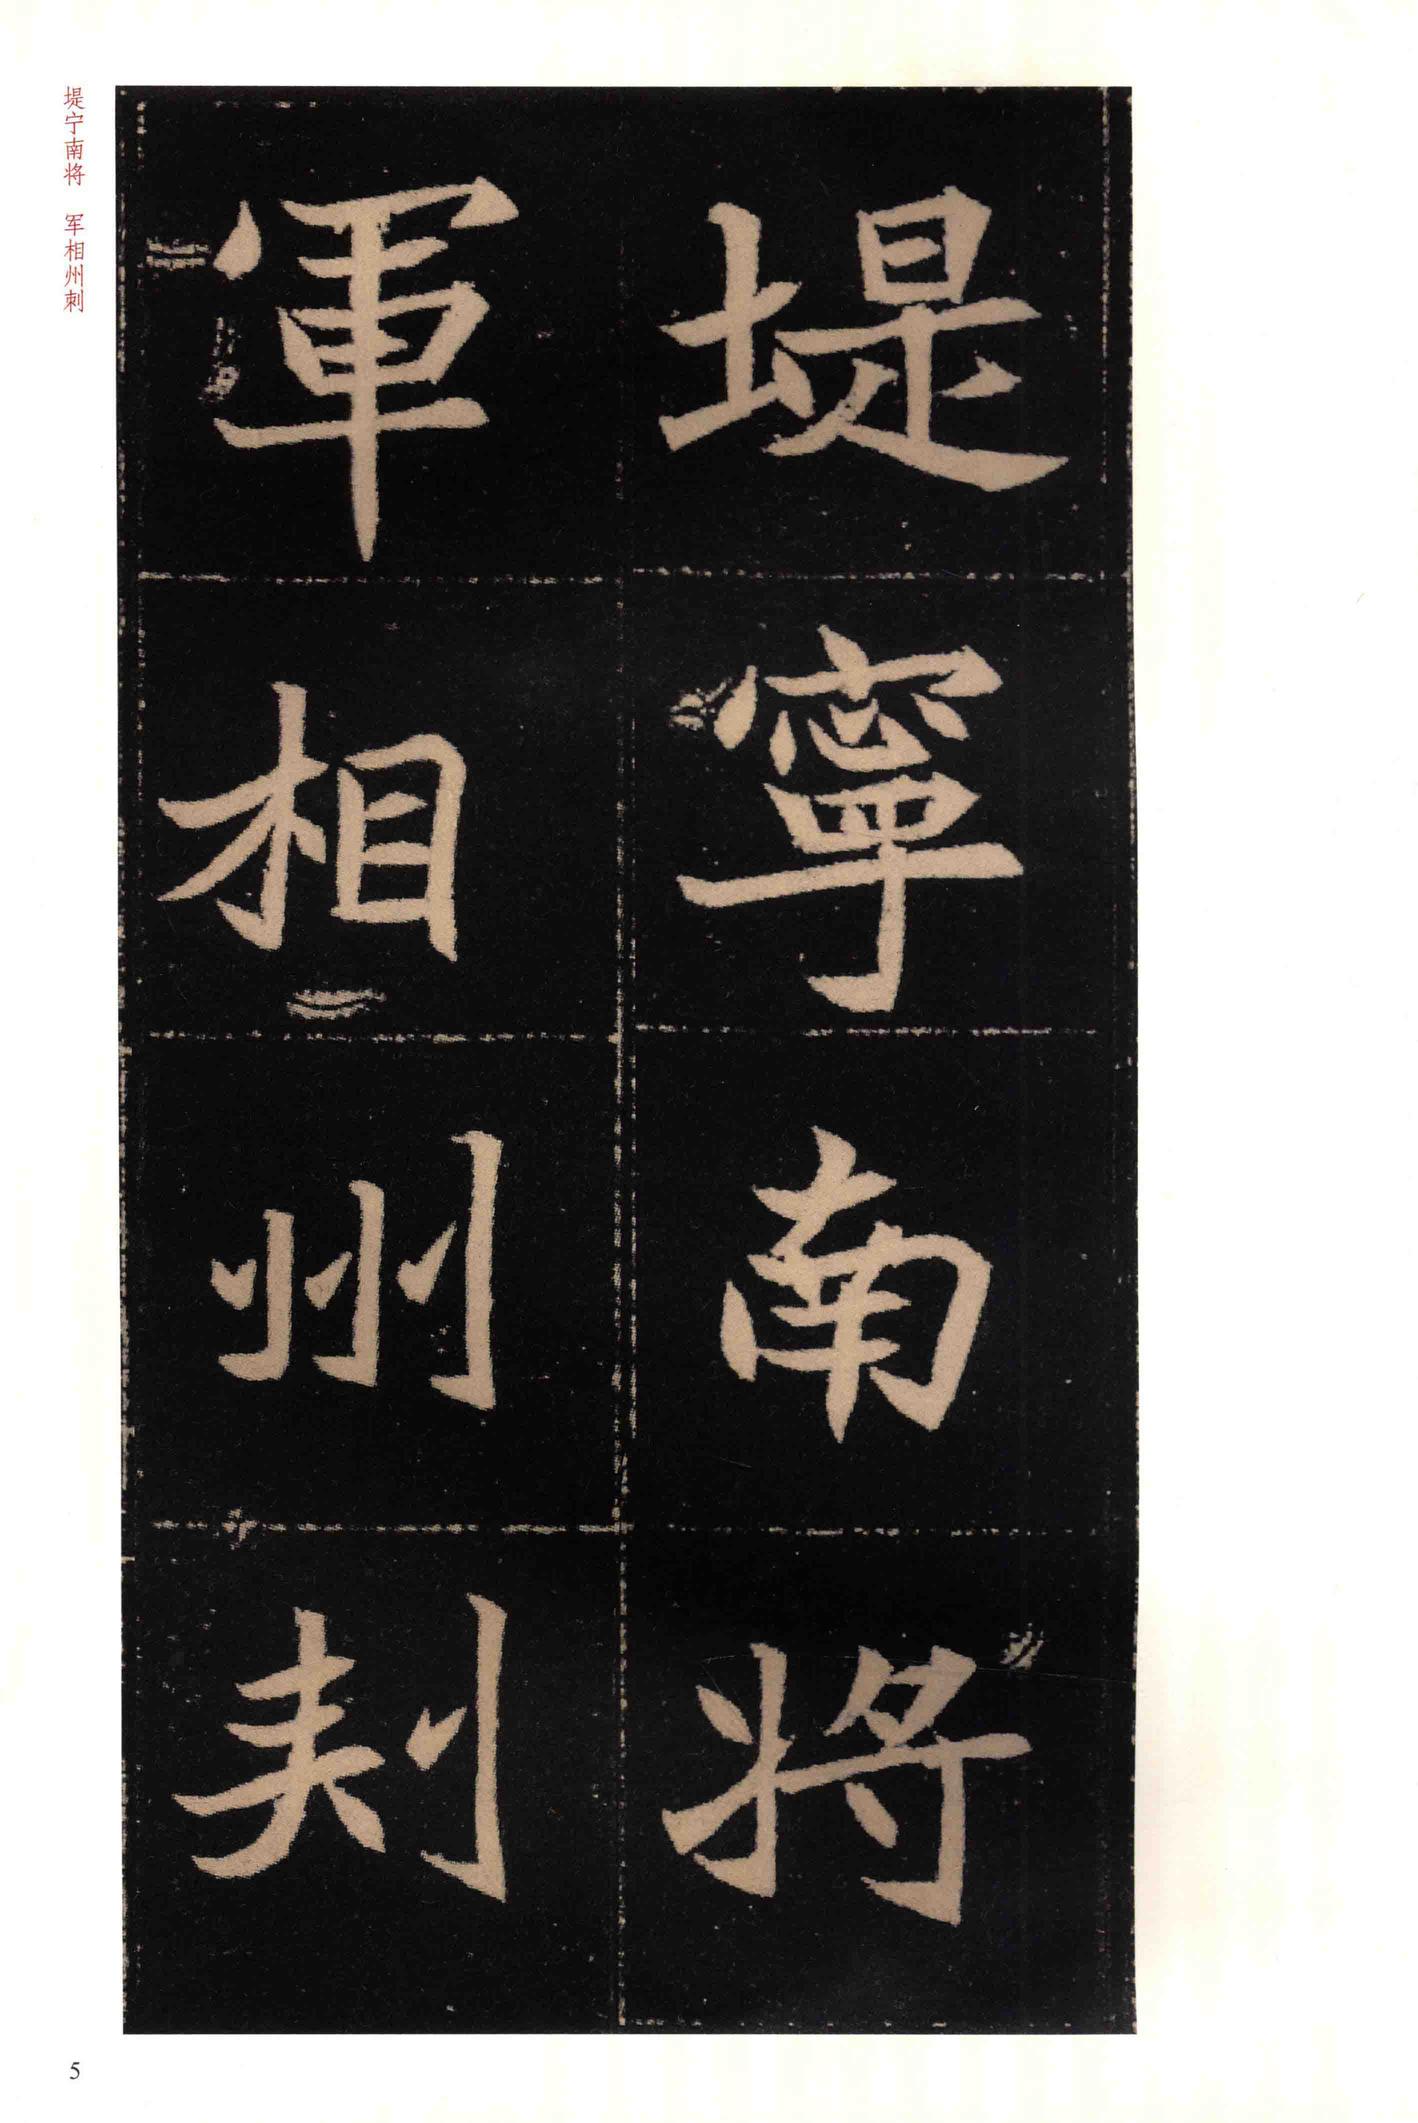 堤寧南將
軍相州刾
堤宁南将 军相州刺
5